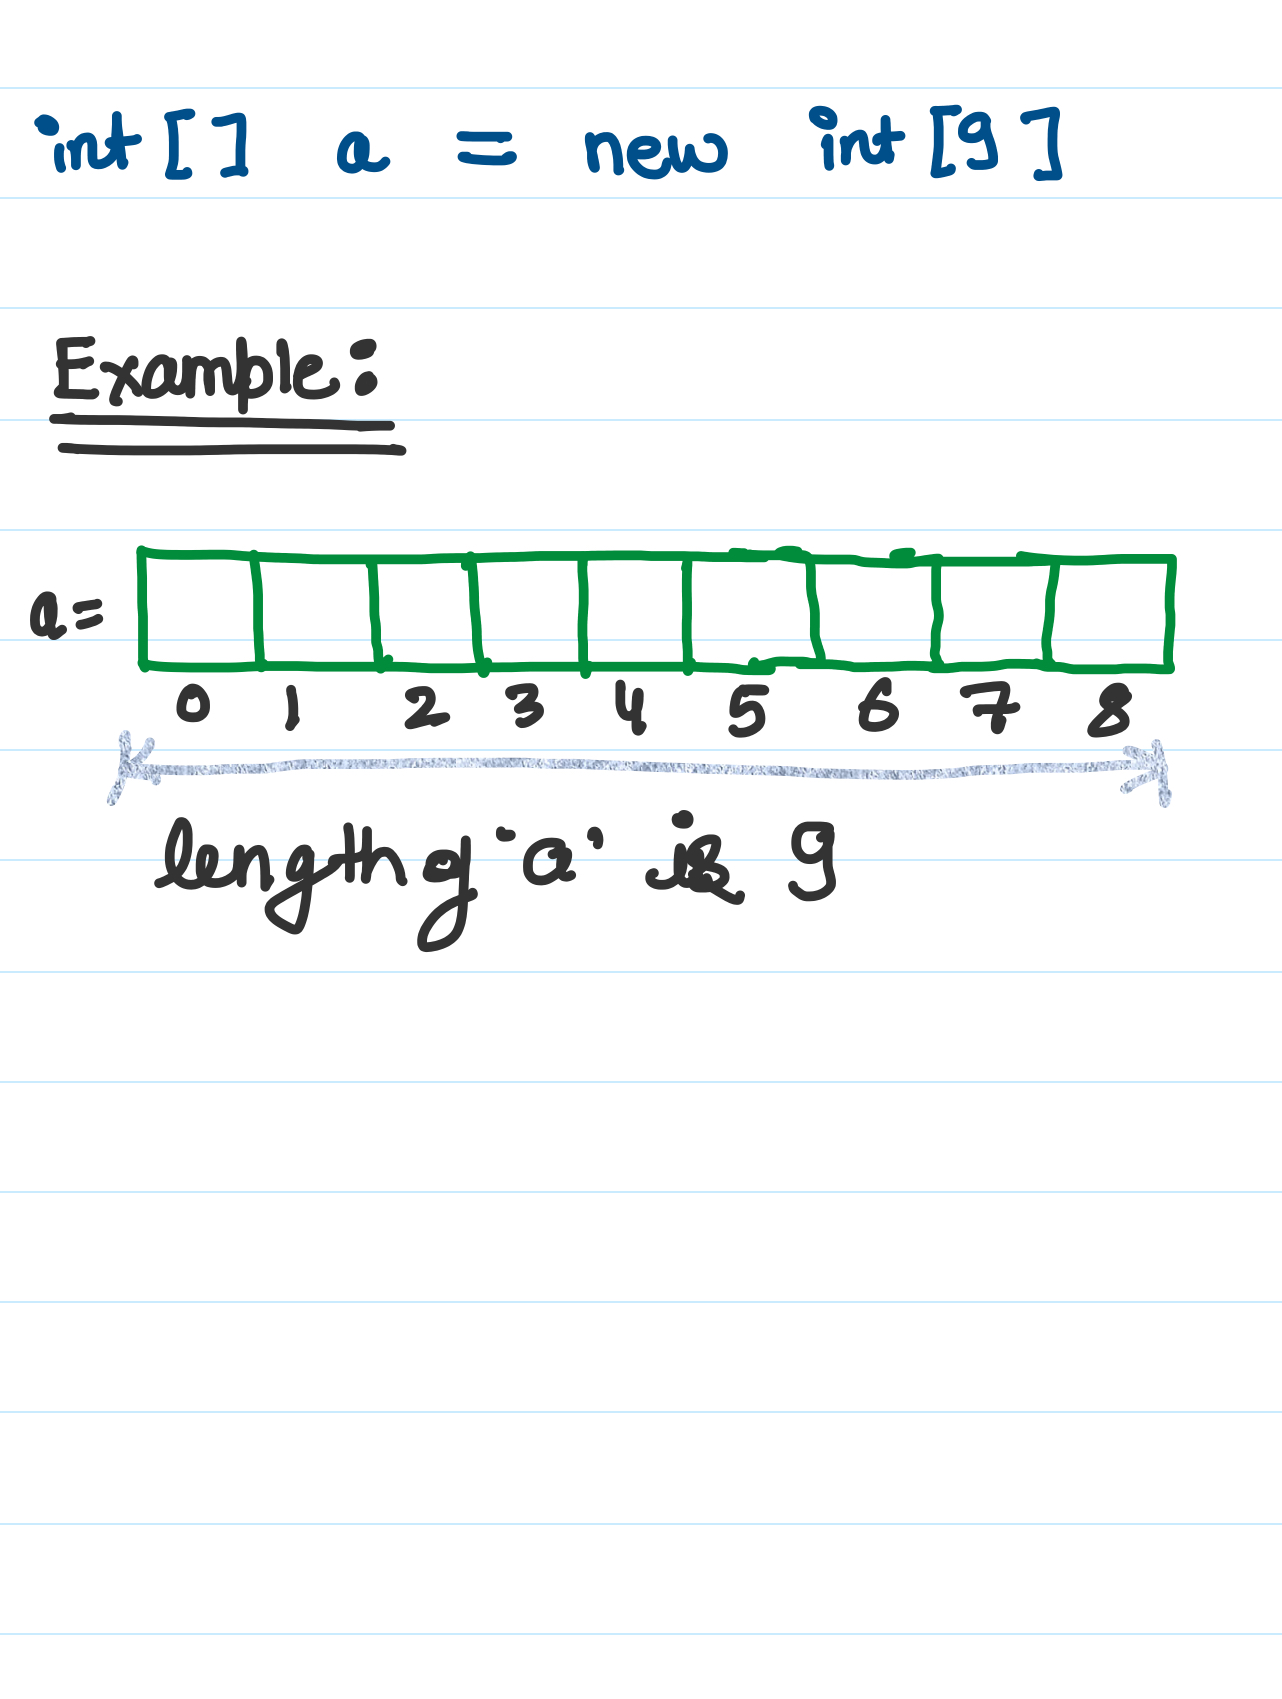 int[] a = new int[9]
Example:
a=
0 1 2 3 4 5 6 7 8
length of 'a' is 9